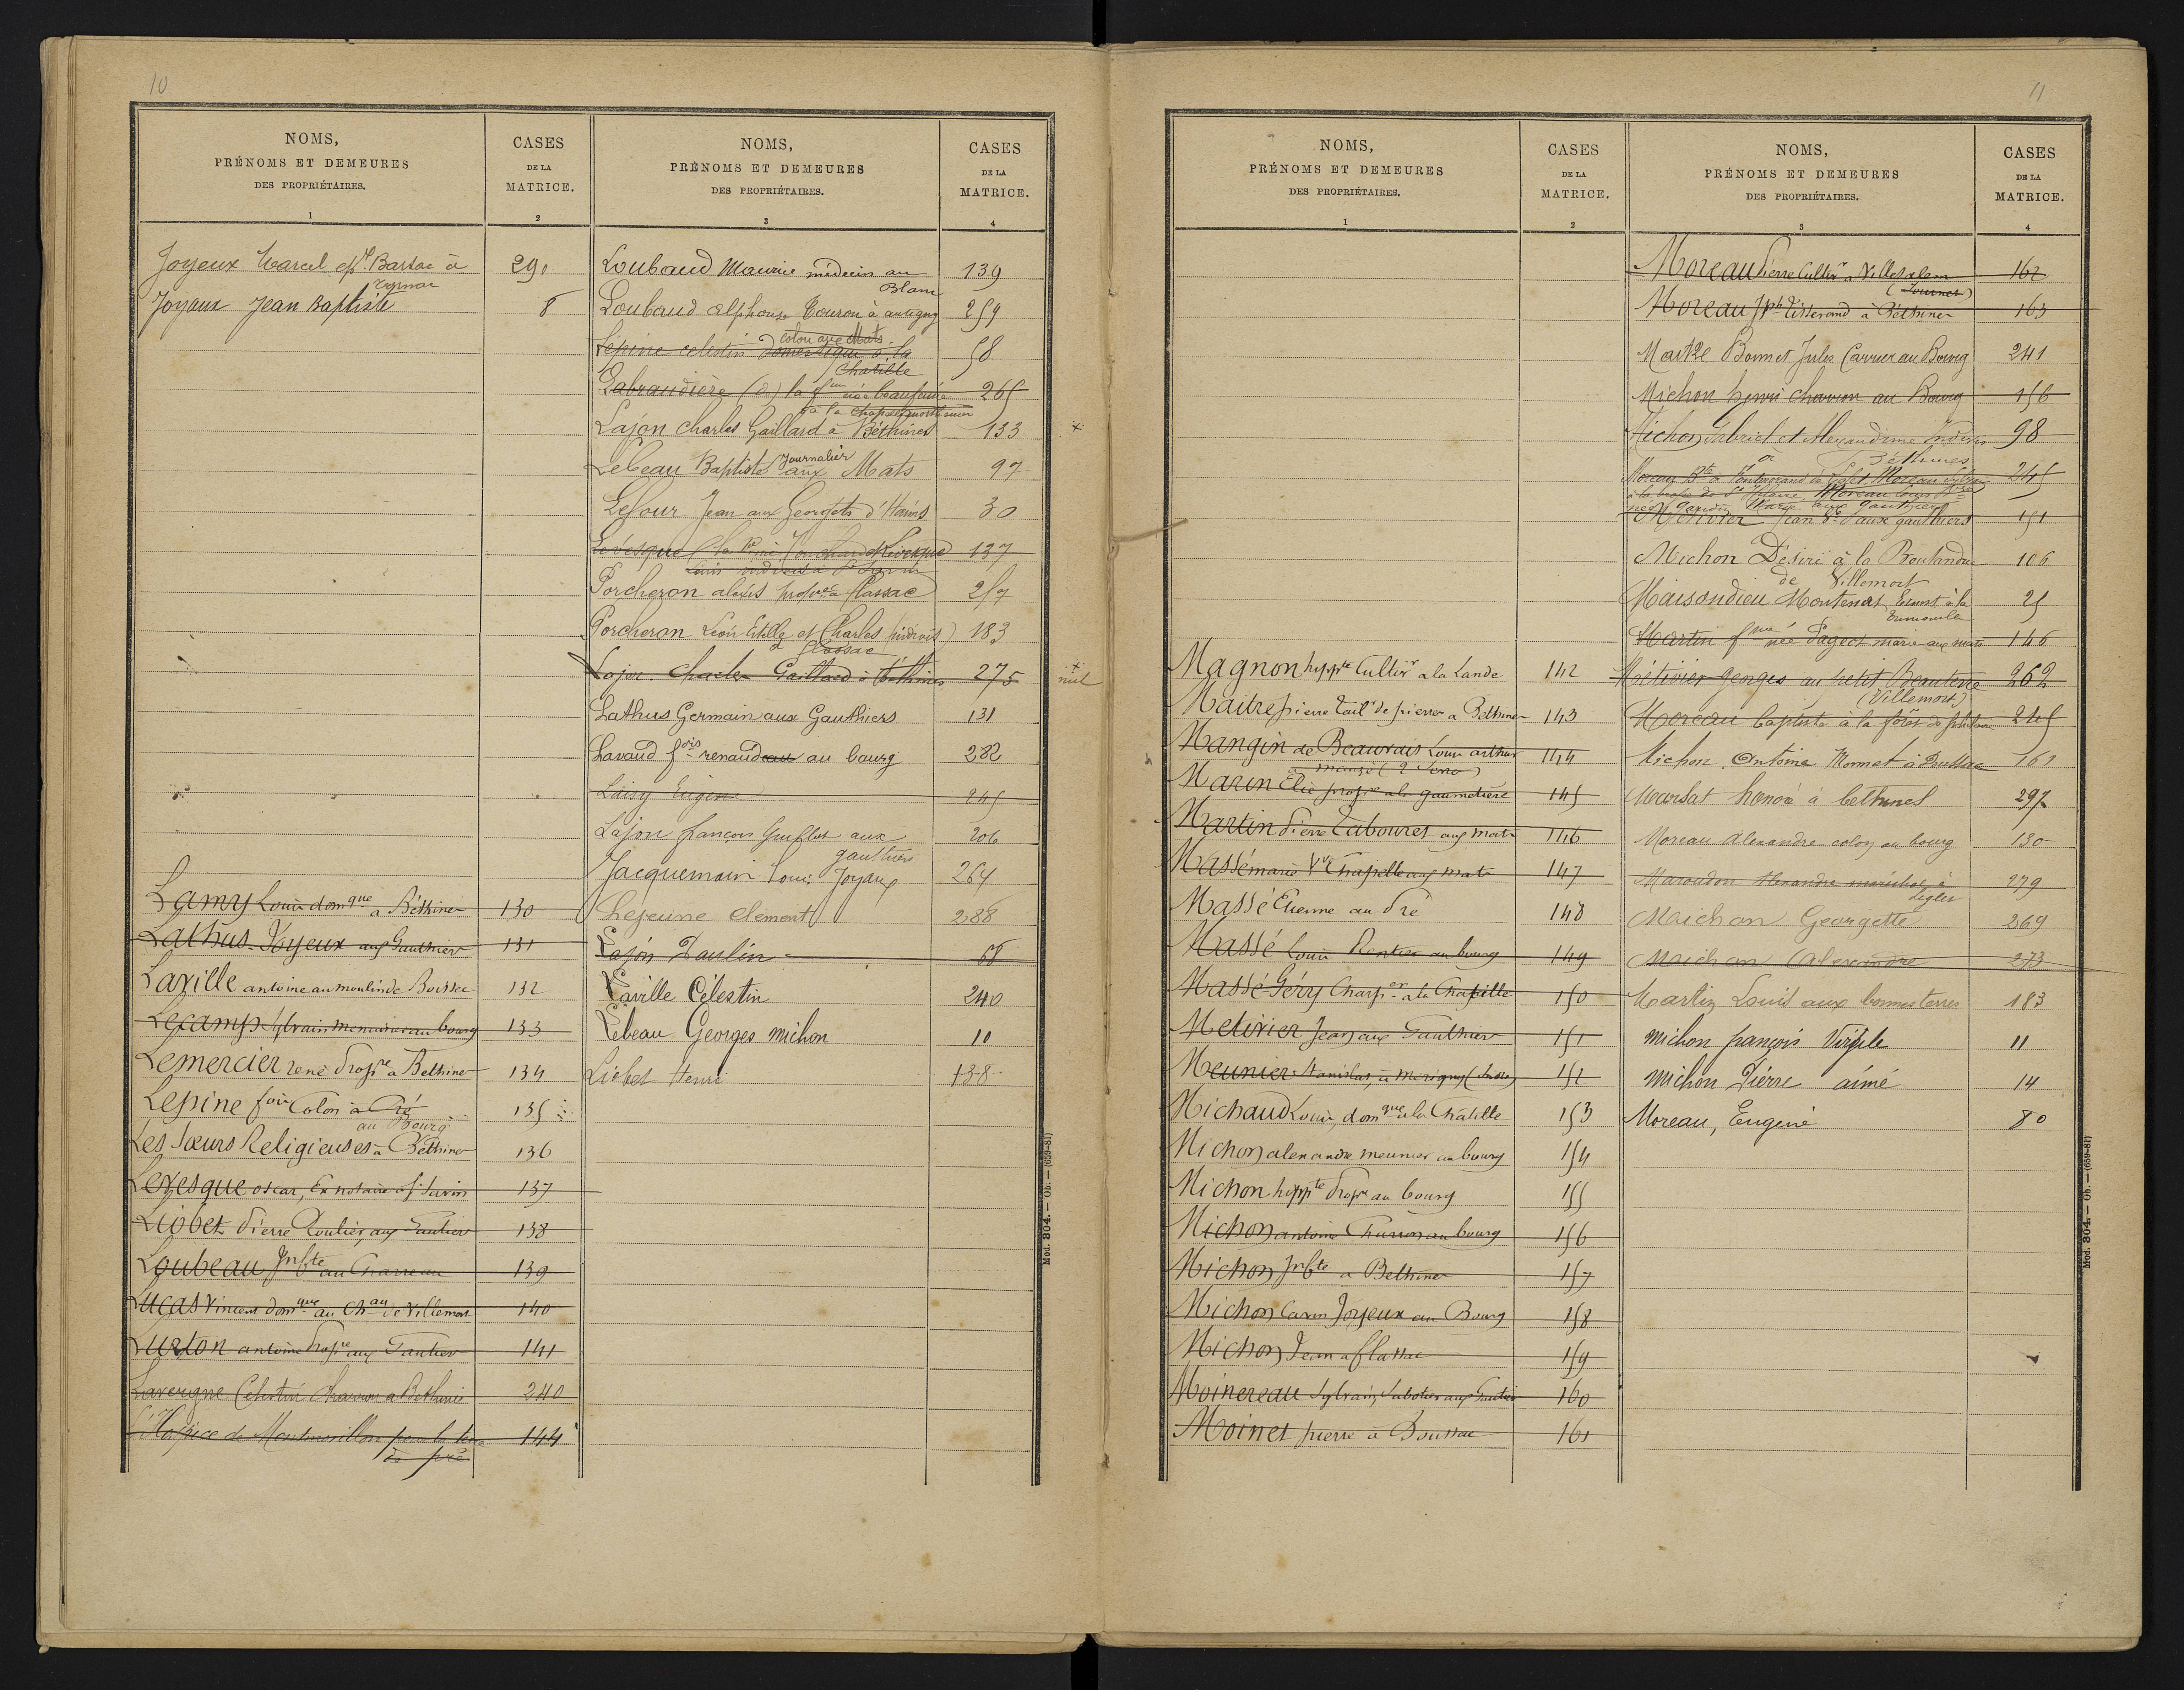 10
NOMS,
PRÉNOMS ET DEMEURES
DES PROPRIÉTAIRES.
1
CASES
DE LA
MATRICE.
2
Joyeux Marcel ep Bastac à 290
Joyaux Jean Baptiste 8
Lamy Louis domque a Béthines 130
Lathus Joyeux aux Gauthiers 131
Laville antoine au moulin de Boussec 132
Lecamp Sylvain Menuisier au bourg 133
Lemercier rené Propre a Bethines 134
Lepine fois Colon à Pré 135
au Bourg
Les Sœurs Religieuses a Béthines 136
Levesque oscar, Ex notaire a St Savin 137
Liobet Pierre Roulier, aux Gautiers 138
Loubeau Jn Bte au Charreau 139
Lucas Vincent domque au Chau de Villemort 140
Luzton antoine Propre aux Gautiers 141
Lavergne Célestin Charron a Bethines 240
L'Hospice de Montmorillon pour la terre 144
du pré
NOMS,
PRÉNOMS ET DEMEURES
DES PROPRIÉTAIRES.
3
CASES
DE LA
MATRICE.
4
Loubaud Maurice médecin au 139
Blanc
Loubaud Alphonse Couron à antigny 259
colon aux Mats
Lépine celestin domestique à la 58
Chatille
Labraudière (de) la fme née beaufumé 265
à la chapelle mortemer
Lajon Charles Gaillard à Béthines 133
Journalier
Lebeau Baptiste aux Mats 97
Lefour Jean aux Georgets d'Haims 30
Levesque 137
Louis indivis à St Savin
Porcheron alexis propre à flassac 257
Porcheron Léon Estelle et Charles (indivis) 183
a flassac
Lajon Charles Gaillard à Béthines 275
nul
Lathus Germain aux Gauthiers 131
Lavaud fois renaudeau au bourg 282
Laisy Eugène 245
Lajon françois Guillot aux 206
gauthiers
Jacquemain Louis Joyaux 264
Lejeune Clément 288
Lajon Paulin 68
Laville Célestin 240
Lebeau Georges michon 10
Liobet Henri 138
Mod. 304. — Ob. — (659-81)
11
NOMS,
PRÉNOMS ET DEMEURES
DES PROPRIÉTAIRES.
1
CASES
DE LA
MATRICE.
2
Magnon hyppte Cultivr a la Lande 142
Maitre pierre Tailr de pierres a Béthines 143
Mangin de Beauvais Louis arthur 144
a mauzé (2 Sèvres)
Marin Elie propre a la gaumetiere 145
Martin Pierre Tabouret aux mats 146
Massé marie Vve Chapelle aux mats 147
Massé Etienne au Pré 148
Massé Louis Rentier au bourg 149
Massé Géry Charper a la Chatille 150
Metivier Jean aux Gauthiers 151
Meunier Stanislas, à Merigny (Indre) 152
Michaud Louis, domque a la Chatille 153
Michon alexandre meunier au bourg 154
Michon hyppte Propre au bourg 155
Michon antoine Charron au bourg 156
Michon Jn Bte a Béthines 157
Michon Carin Joyeux au Bourg 158
Michon Jean a flassac 159
Moinereau Sylvain, Sabotier aux Gautiers 160
Moinet pierre à Boussac 161
NOMS,
PRÉNOMS ET DEMEURES
DES PROPRIÉTAIRES.
3
CASES
DE LA
MATRICE.
4
Moreau Pierre Cultivr a Villesalem 162
(Journet)
Moreau Jph Tisserand à Béthines 163
Maitre Bonnet Jules Carrier au Bourg 241
Michon henri charron au Bourg 156
Michon Gabriel et Alexandrine Indivis 98
à Béthines
Moreau 245
à la brosse de St Hilaire, Moreau Louis
Marie aux gauthiers
Metivier Jean Bte aux gauthiers 151
Michon Désiré à la Boulandrie 106
de Villemort
Maisondieu Montenat Ernest à la 25
Martin fme née Pageot marie aux mats 146
Métivier georges au petit Beauterre 262
(Villemort)
Moreau baptiste à la forêt de St hilaire 245
Michon Antoine Monnet à Boussac 161
Marsat honoré à bethines 297
Moreau alexandre colon au bourg 130
Maroudon Alexandre maréchal à 279
Maichan Georgette 269
Maichan Alexandre 273
Martin Louis aux bonnes terres 183
Michon françois Virgile 11
Michon Pierre aimé 14
Moreau, Eugene 80
Mod. 304. — Ob. — (659-81)